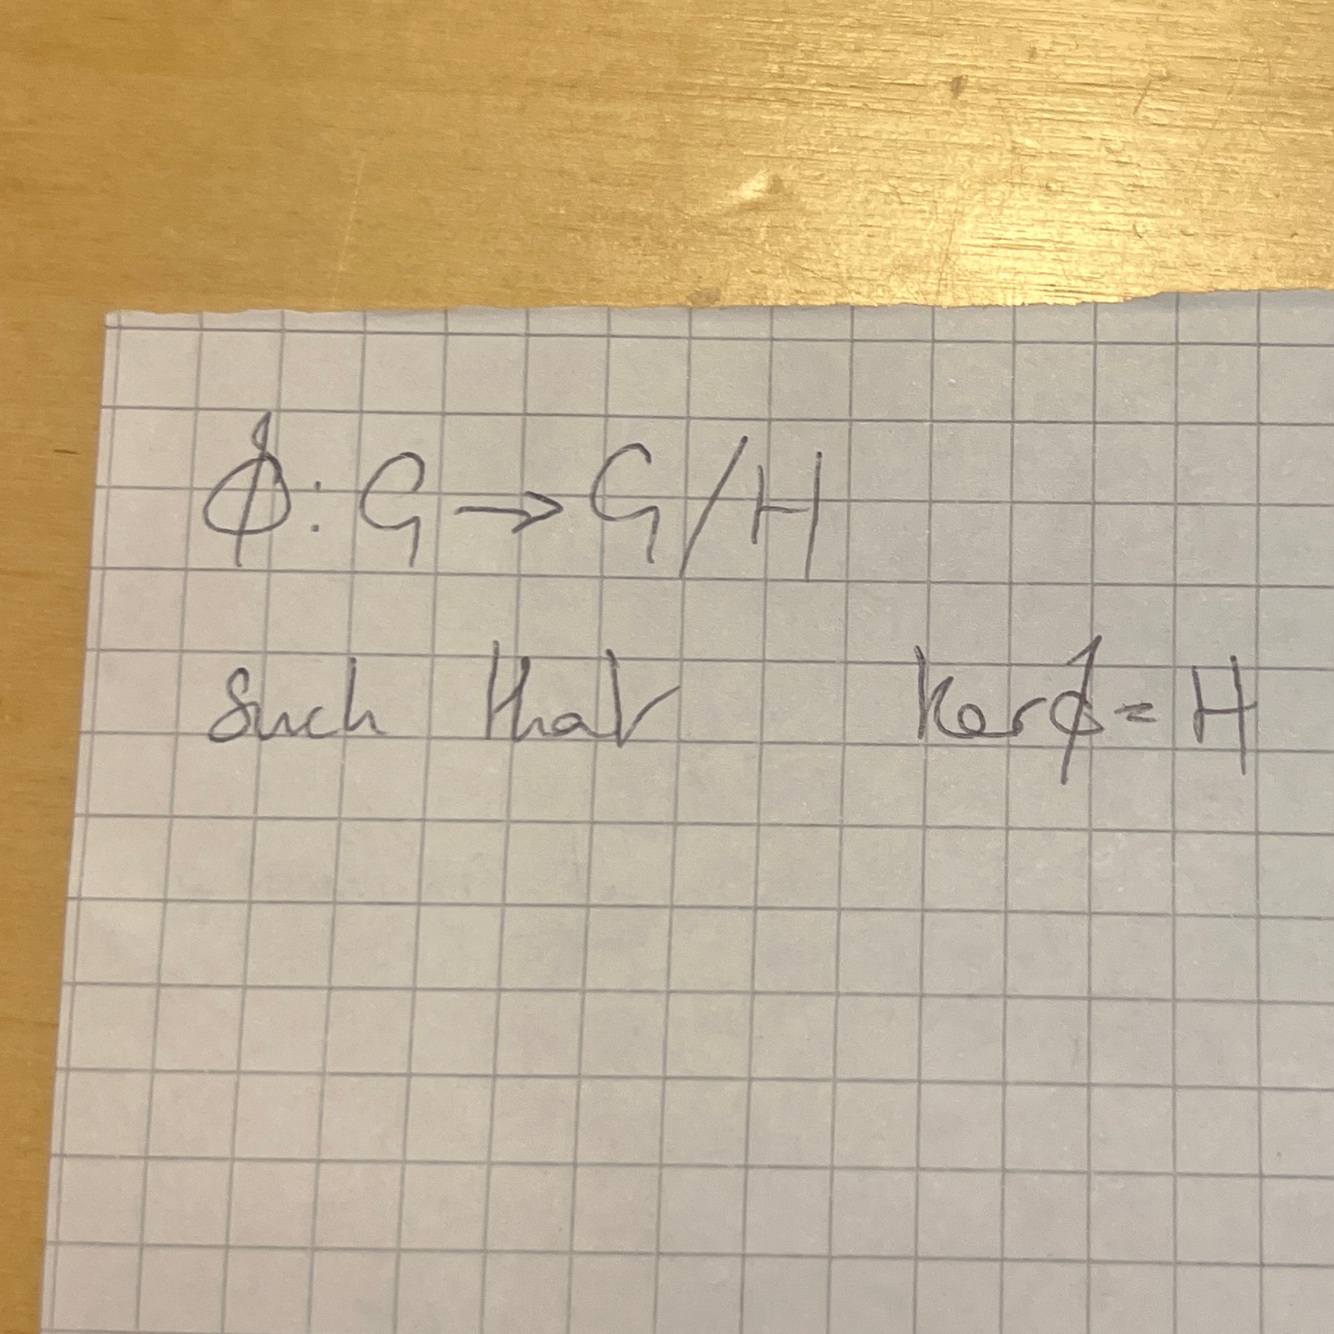 ϕ: G → G/H
such that ker ϕ = H